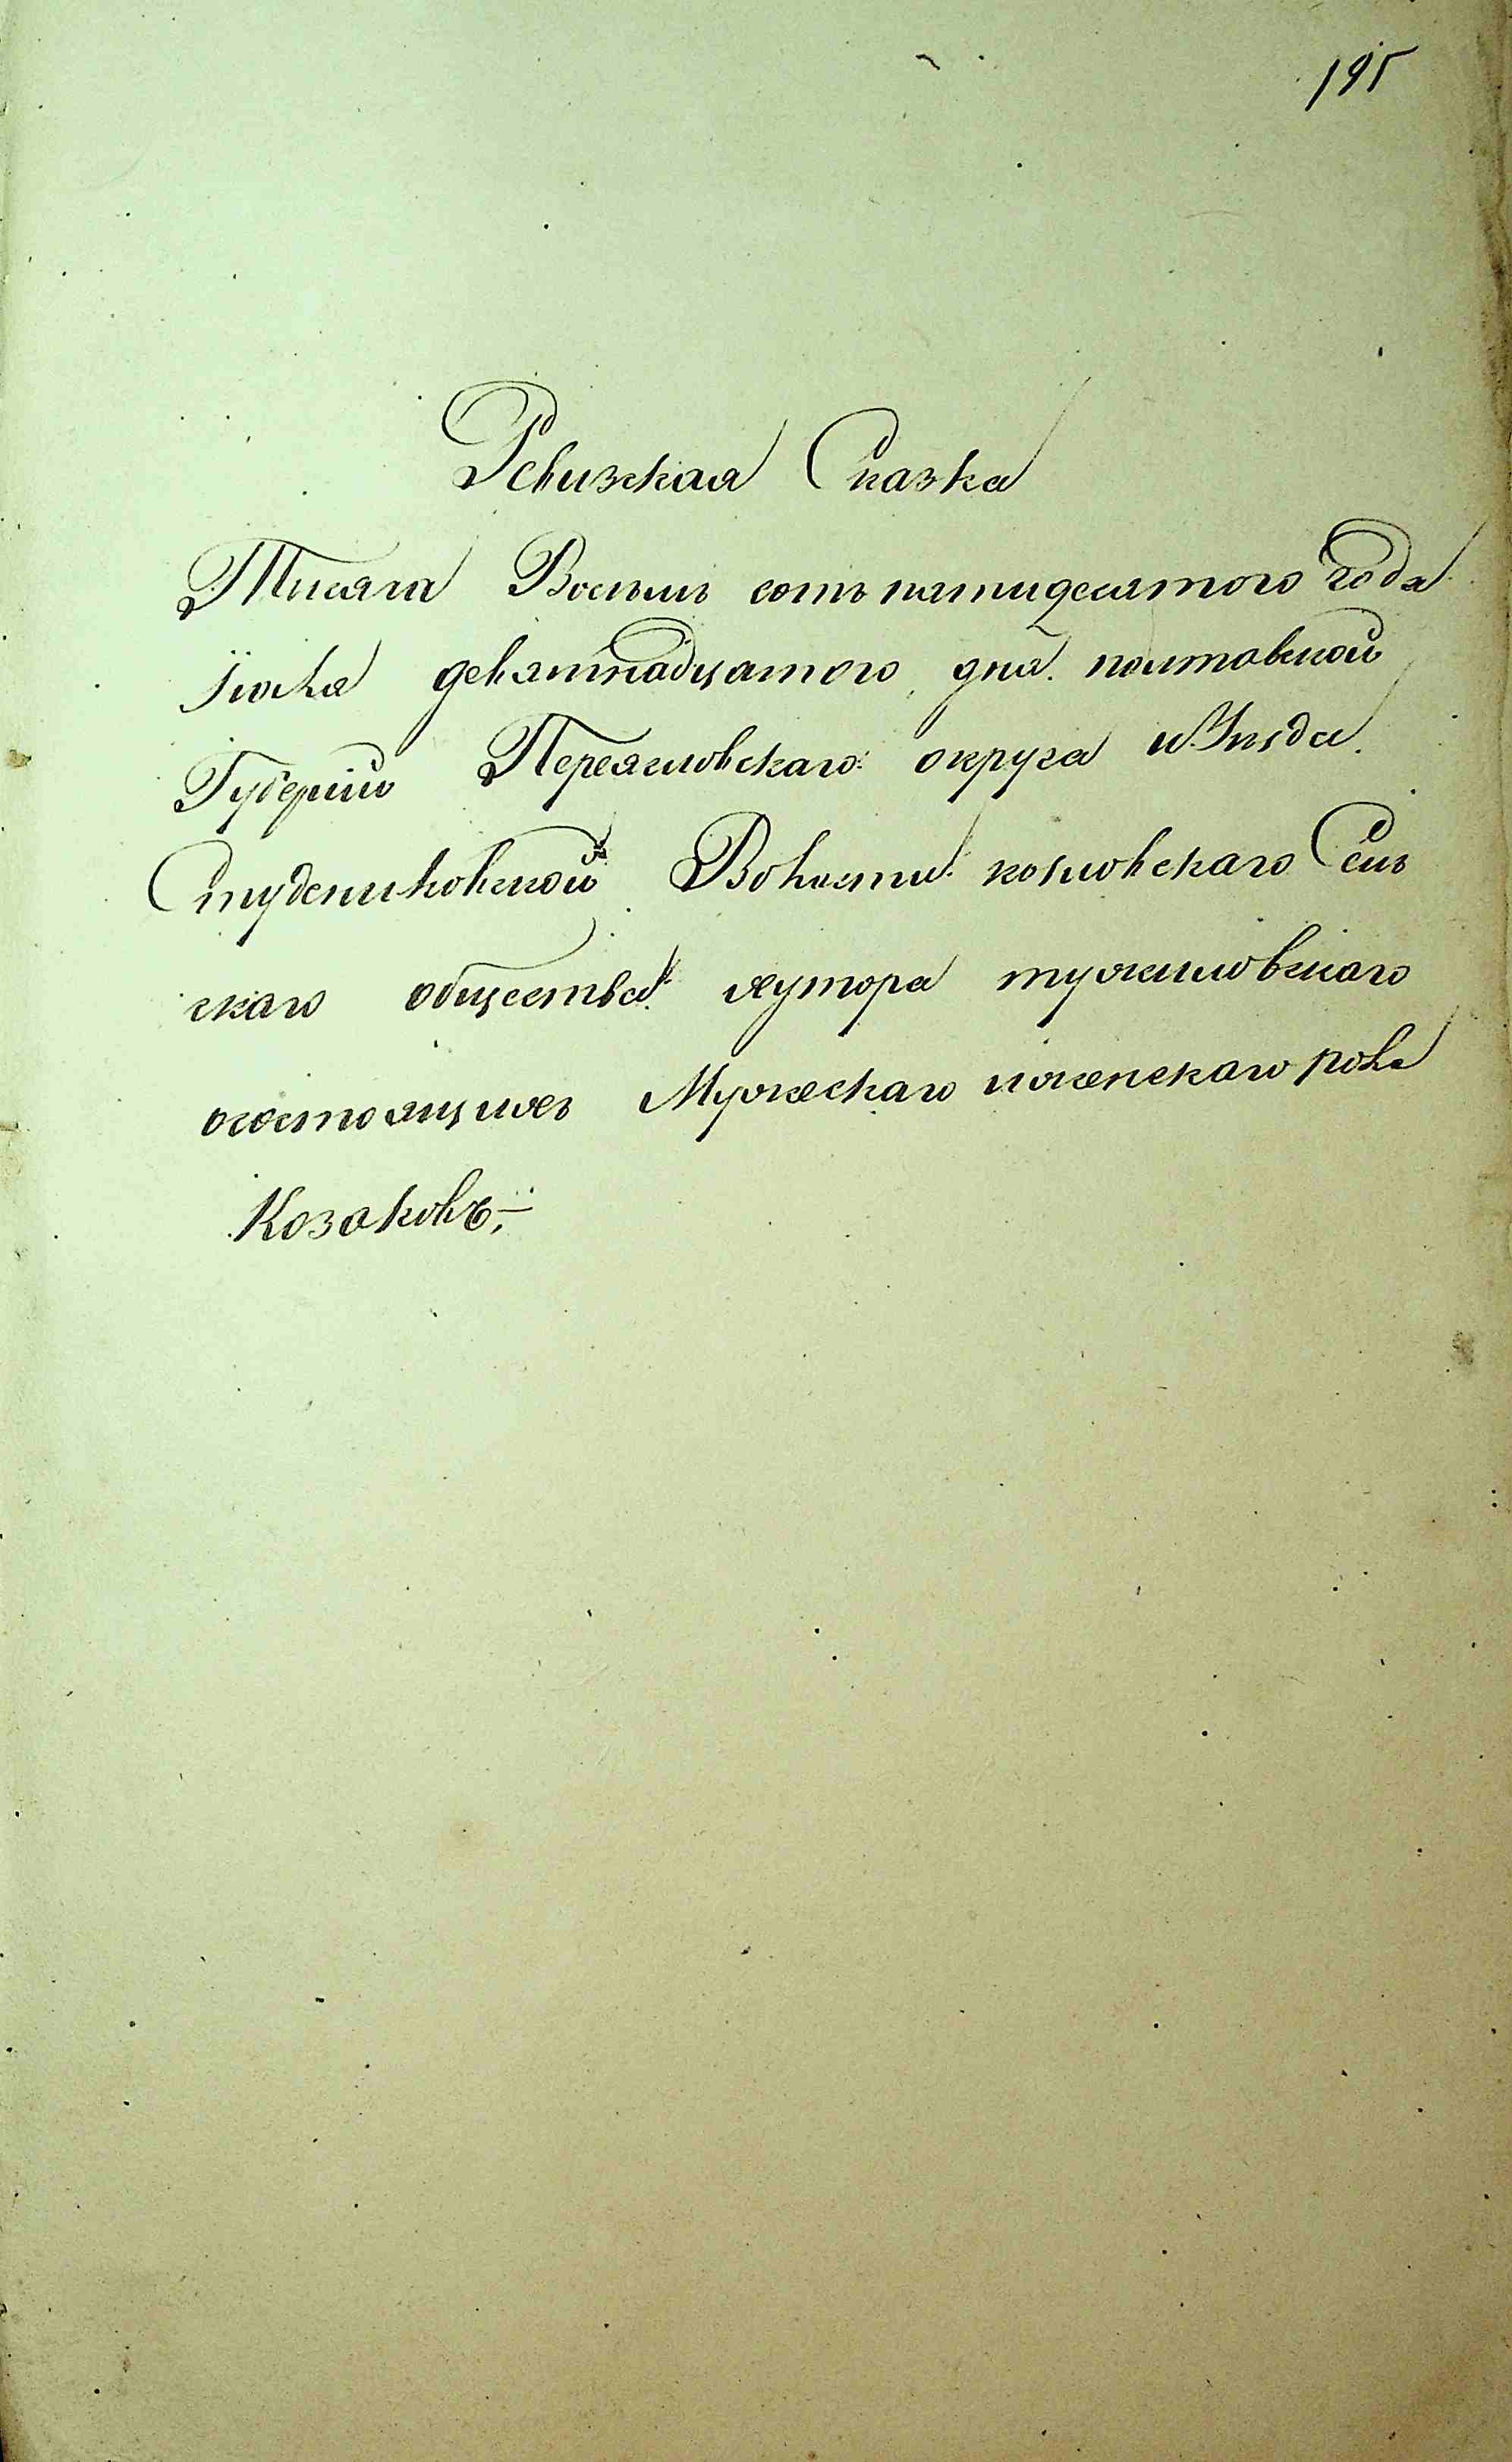 195
Ревизская Сказка
Тисяча Восемь сотъ пятидесятого года
Іюля девятнадцатого дня. полтавской
Губерніи Переяславскаго округа и Уѣзда.
Студениковской Волости козловскаго Сель
скаго общества хутора
осостоящихъ Мужескаго иженскаго пола
Козаковъ,